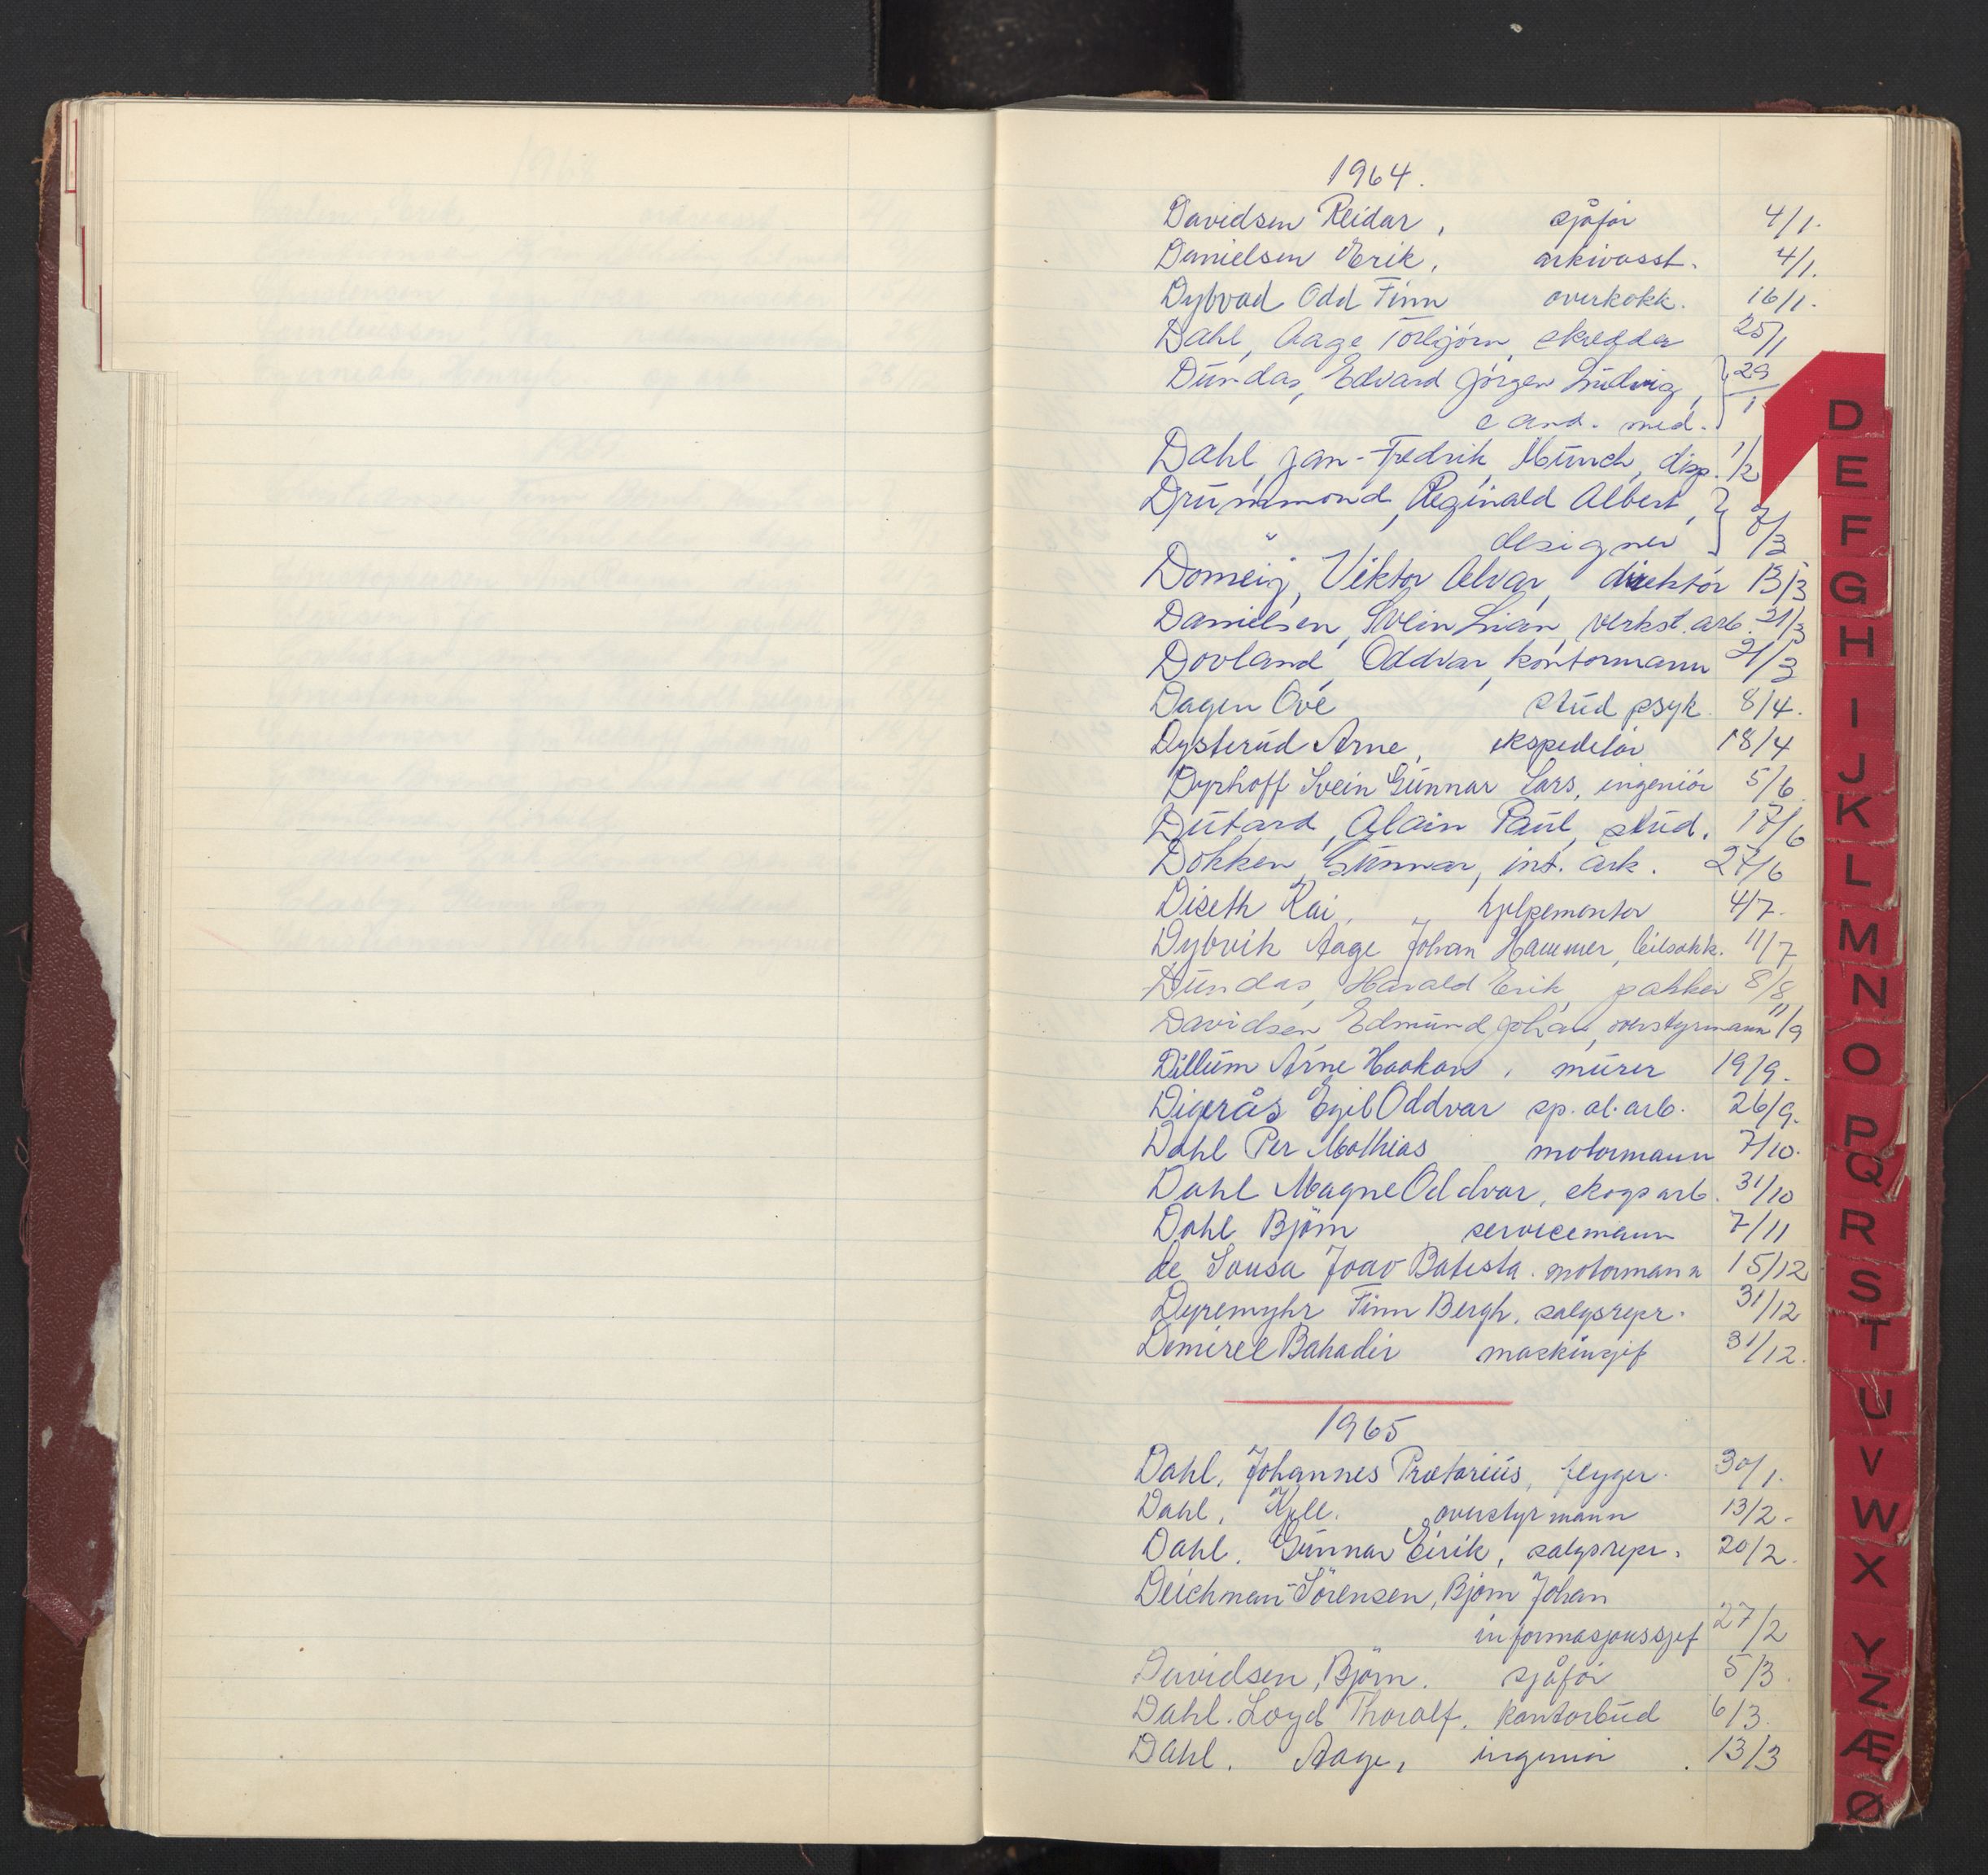 1964.
Davidsen Reidar, sjåför 4/1.
Danielsen Erik, arkivasst. 4/1.
Dybvad Odd Finn overkokk. 16/1.
Dahl, Aage Torbjörn, skredder 25/1
Dundas, Edvard Jörgen Ludvig, } 29/1
cand. med.
Dahl, Jan-Fredrik, Münch, disp. 1/2
Drummond, Reginald Albert, } 7/3
designer
Domeij, Viktor Alvar, direktör 13/3
Danielsen, Svein Lian, verkst. arb. 21/3
Dovland, Oddvar, kontormann 21/3
Dagen Ove stud psyk. 8/4.
Dysterud Arne, ekspeditör 18/4
Dyrhoff Svein Gunnar Lars, ingeniör 5/6
Dutard, Alain Paul, stud. 17/6
Dokken, Gunnar, int. ark. 27/6
Diseth Kai, hjelpemontör 4/7.
Dybvik Aage Johan Hammer, bilsakk. 11/7
Dundas, Harald Erik, pakker 8/8
Davidsen Edmund Johan, overstyrmann 11/9
Dillum Arne Haakon, murer 19/9.
Digerås Egil Oddvar sp. al. arb. 26/9.
Dahl Per Mathias motormann 7/10.
Dahl Magne Oddvar, skogsarb. 31/10
Dahl Björn servicemann 7/11
de Sousa Joao Batista. motormann 15/12
Dyremyhr Finn Bergh, salgsrepr. 31/12
Demirel Bahadir maskinsjef 31/12.
1965
Dahl, Johannes Prætorius, flyger. 30/1.
Dahl, Kjell. overstyrmann 13/2.
Dahl, Gunnar Eirik, salgsrepr. 20/2.
Deichman-Sörensen, Björn Johan
informasjonssjef 27/2
Davidsen, Björn. sjåför 5/3
Dahl. Loyd Thoralf. kontorbud 6/3.
Dahl. Aage, ingeniör. 13/3
D
E
F
G
H
I
J
K
L
M
N
O
P
Q
R
S
T
U
V
W
X
Y
Z
Æ
Ø